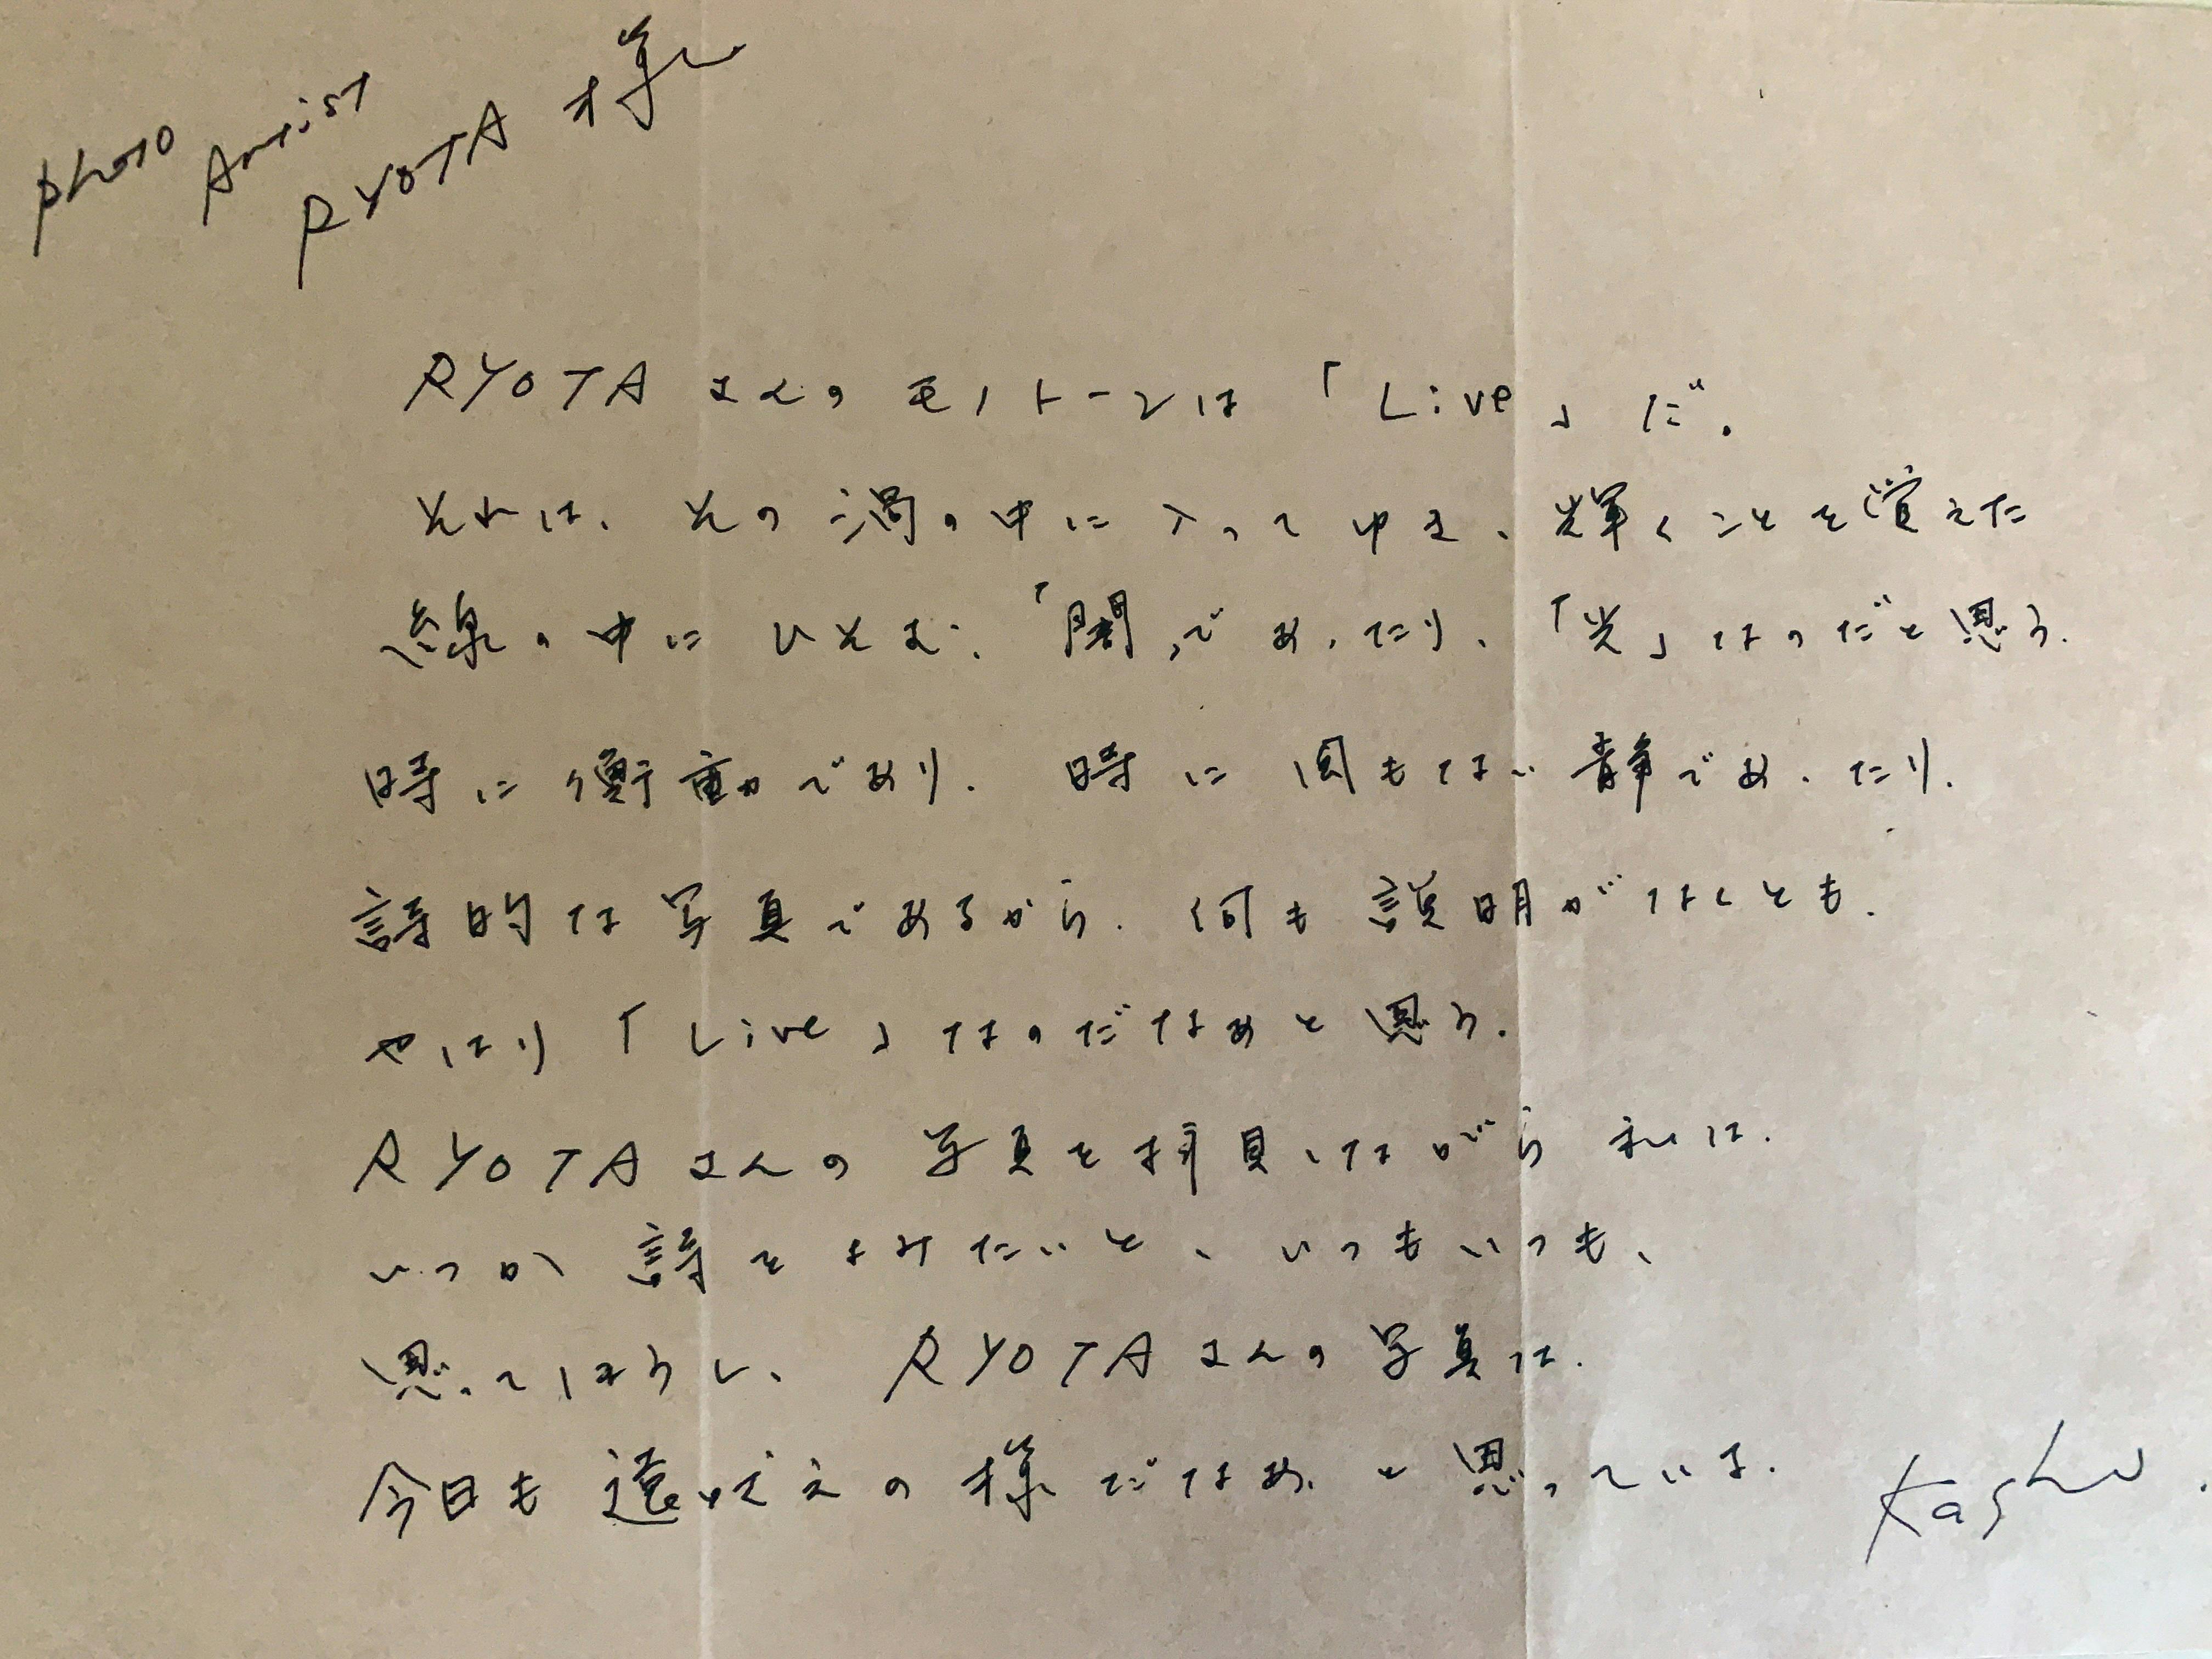 photo Artist
RYOTA 様
RYOTA さんの モノトーンは 「Live」だ。
それは、その渦の中に入ってゆき、輝くことを覚えた
線の中に ひそむ、「闇」であったり、「光」なのだと思う.
時に衝動であり. 時に 何もない 静であったり.
詩的な写真であるから. 何も説明がなくとも.
やはり「Live」なのだなあと思う.
RYOTA さんの 写真を拝見しながら 私は.
いつか 詩を よみたいと、いつもいつも、
思っているし、 RYOTA さんの写真は.
今日も 遠吠えの様だなあ、と思っている.
Kashu.